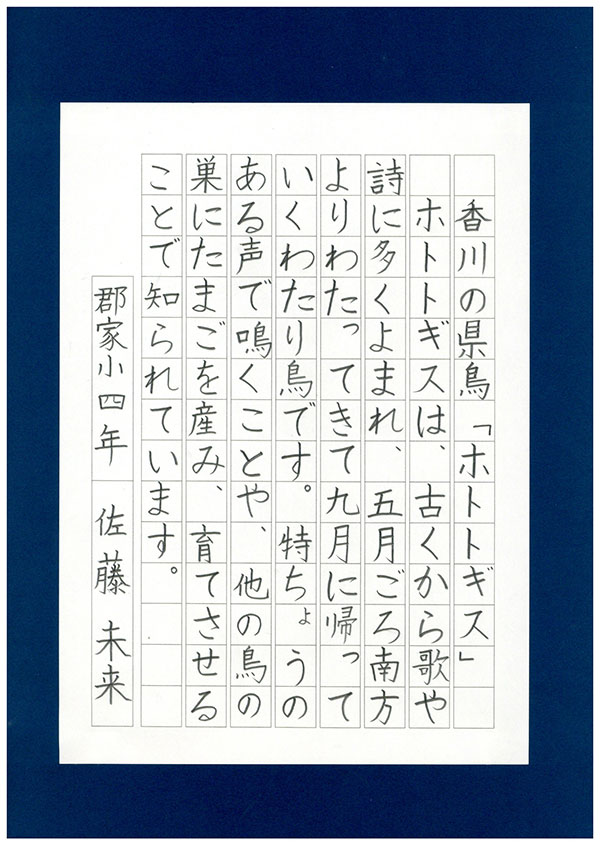 香川の県鳥「ホトトギス」
ホトトギスは、古くから歌や
詩に多くよまれ、五月ごろ南方
よりわたってきて九月に帰って
いくわたり鳥です。特ちょうの
ある声で鳴くことや、他の鳥の
巣にたまごを産み、育てさせる
ことで知られています。
郡家小四年 佐藤未来